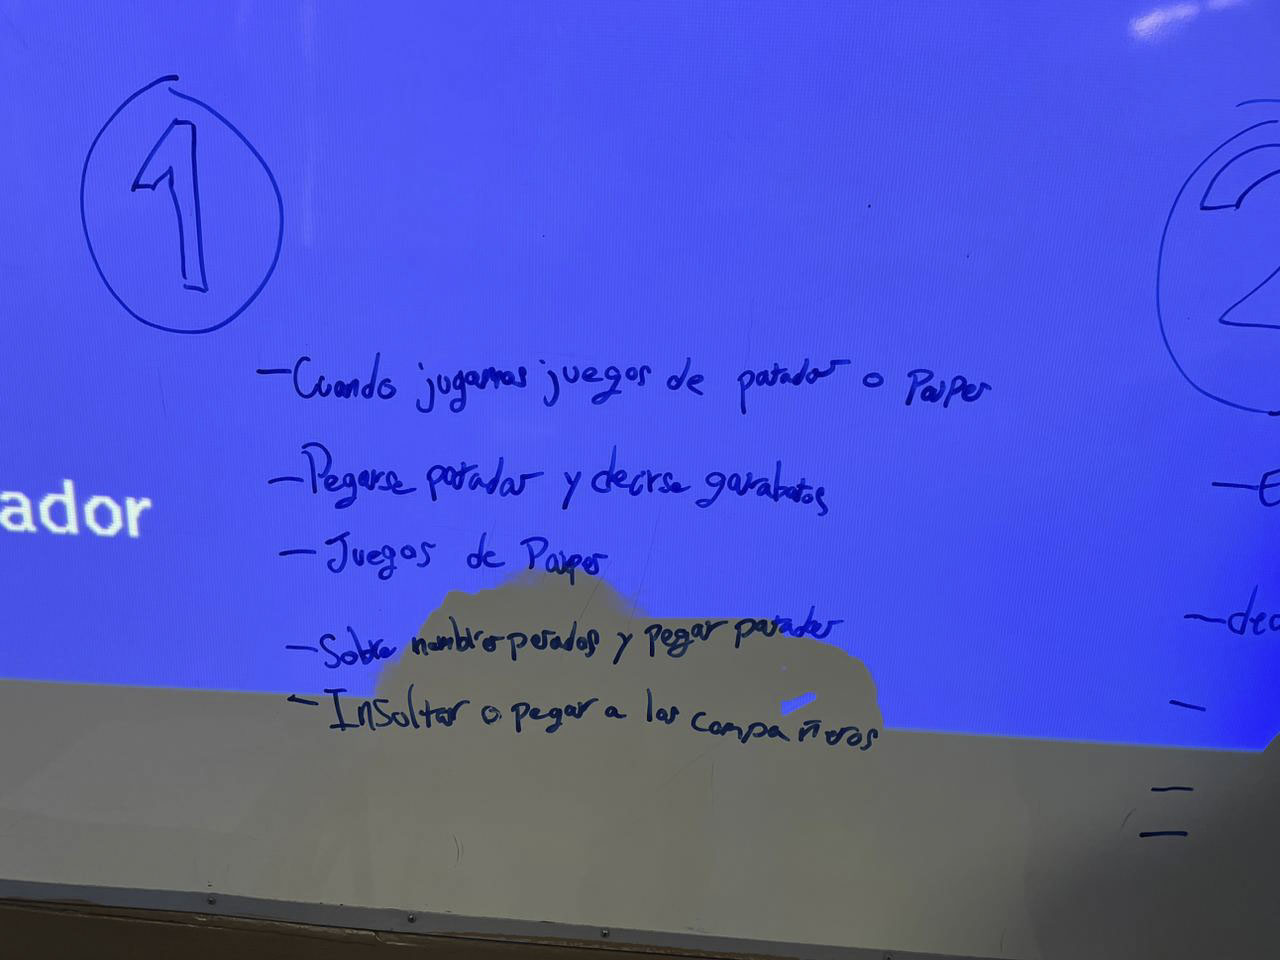 1
2
- Cuando jugamos juegos de patadas o Paipes
- Pegarse patadas y decirse garabatos
ador
- Juegos de Paipes
- Sobre nombres pesados y pegar patadas
- Insoltar o pegar a los compañeros
- E
- dec